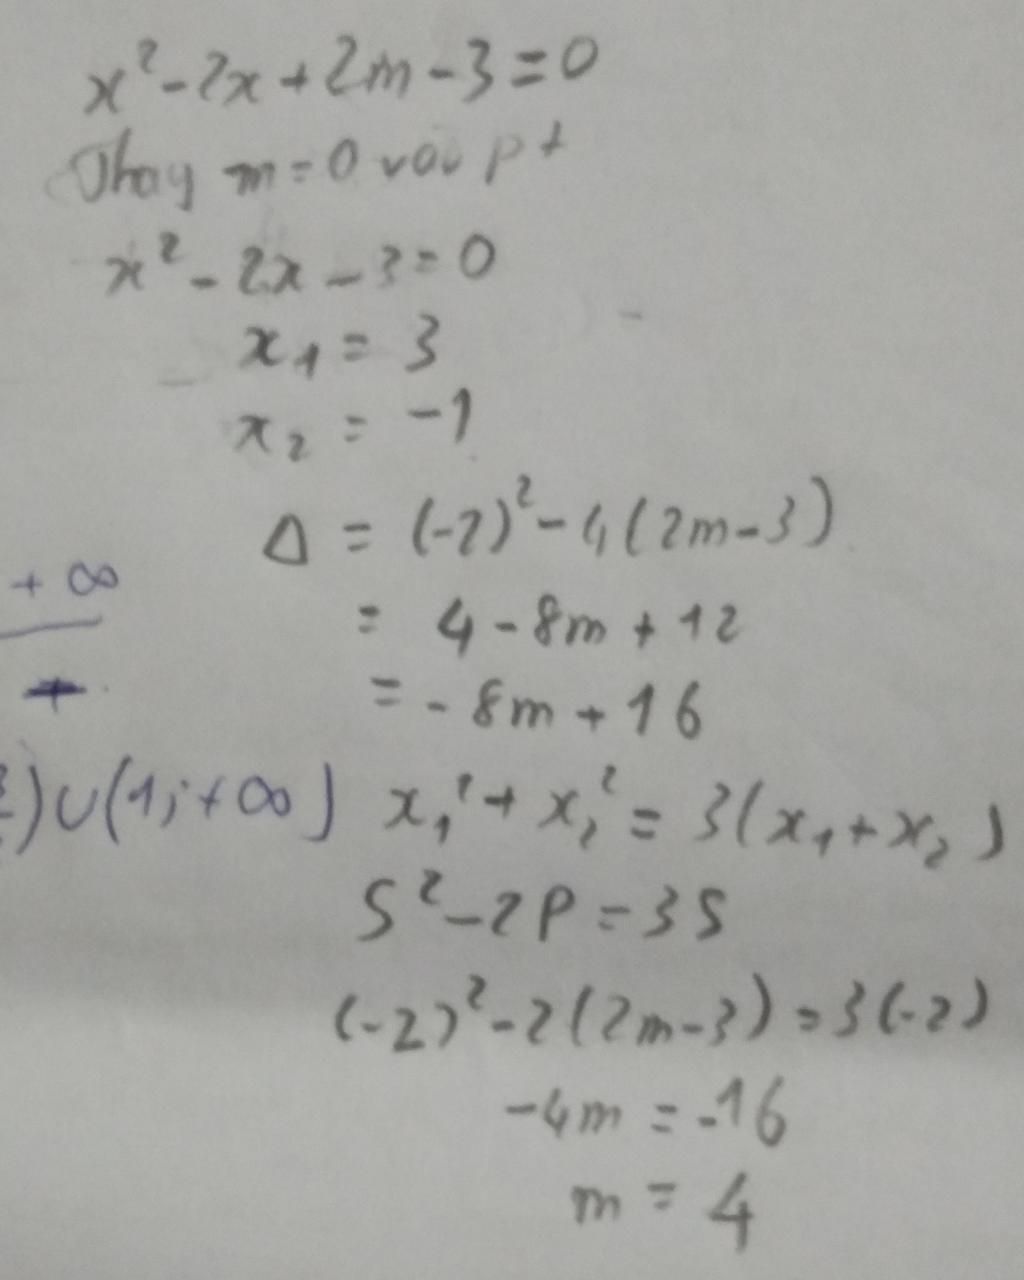 x² - 2x + 2m - 3 = 0
Thay m = 0 vào pt
x² - 2x - 3 = 0
x₁ = 3
x₂ = -1
Δ = (-2)² - 4(2m - 3)
= 4 - 8m + 12
= -8m + 16
+ ∞
+
) ∪ (1; +∞)
x₁² + x₂² = 3(x₁ + x₂)
S² - 2P = 3S
(-2)² - 2(2m - 3) = 3(-2)
-4m = -16
m = 4